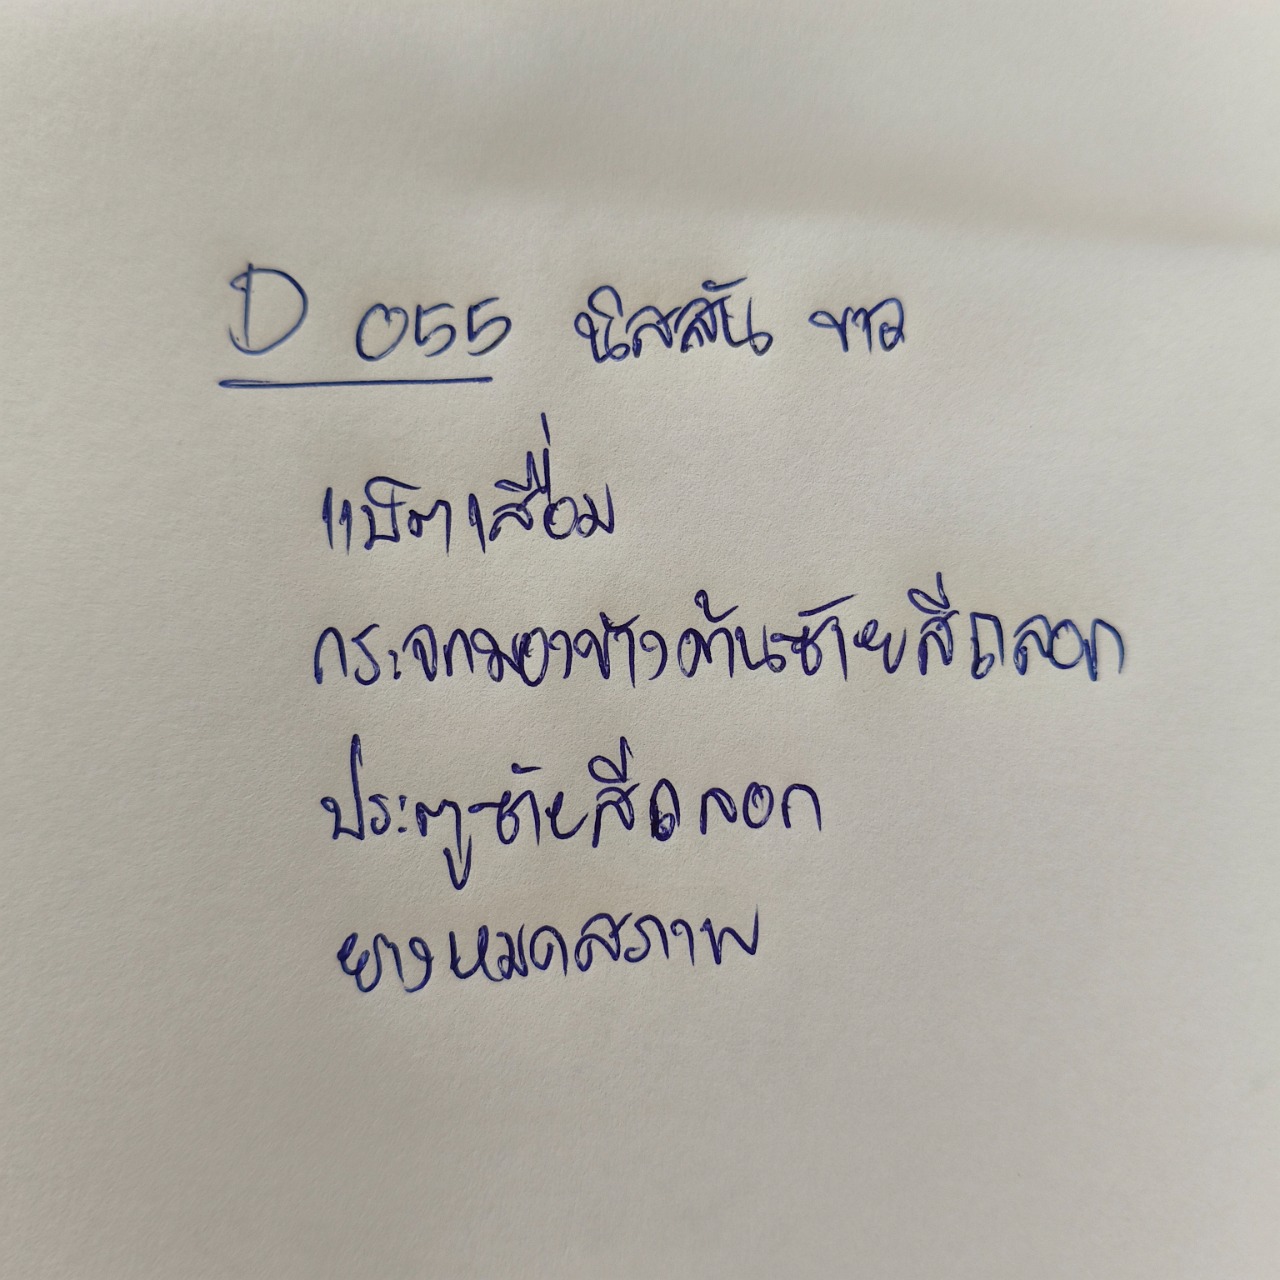 D 055 นิสสัน ขาว
แบ็ตเสื่อม
กระจกมองข้างด้านซ้ายสีถลอก
ประตูซ้ายสีถลอก
ยางหมดสภาพ